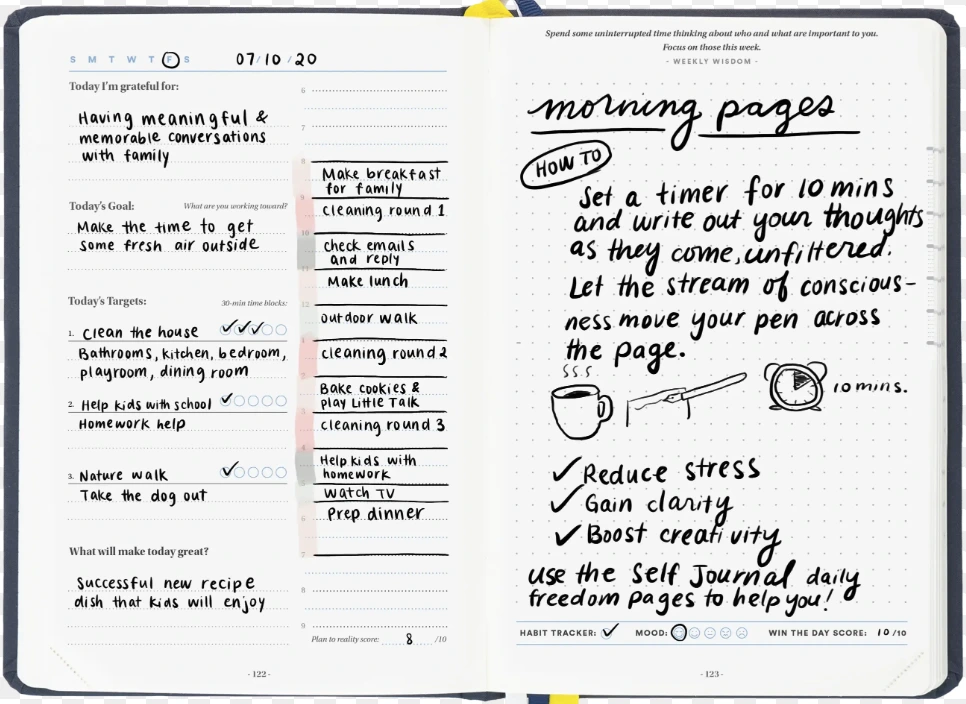 S M T W T F S 07/10/20
Today I'm grateful for:
Having meaningful &
memorable conversations
with family
Today's Goal: What are you working toward?
Make the time to get
some fresh air outside
Today's Targets: 30-min time blocks:
1. Clean the house
Bathrooms, kitchen, bedroom,
playroom, dining room
2. Help kids with school
Homework help
3. Nature walk
Take the dog out
What will make today great?
Successful new recipe
dish that kids will enjoy
6
7
8
Make breakfast
for family
9
cleaning round 1
10
check emails
and reply
11
Make lunch
12
outdoor walk
1
cleaning round 2
2
Bake cookies &
play Little Talk
3
cleaning round 3
4
Help kids with
homework
5
Watch TV
Prep dinner
6
7
8
9
Plan to reality score: 8 /10
- 122 -
Spend some uninterrupted time thinking about who and what are important to you.
Focus on those this week.
- WEEKLY WISDOM -
morning pages
HOW TO
Set a timer for 10 mins
and write out your thoughts
as they come, unfiltered.
Let the stream of conscious-
ness move your pen across
the page.
10 mins.
Reduce stress
Gain clarity
Boost creativity
use the Self Journal daily
freedom pages to help you!
HABIT TRACKER: MOOD: WIN THE DAY SCORE: 10/10
- 123 -